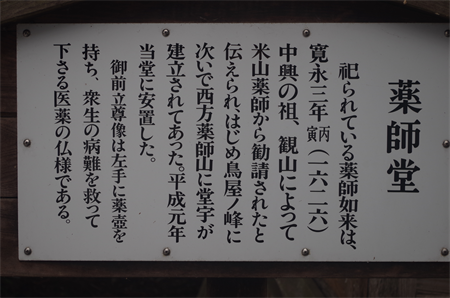 薬師堂
祀られている薬師如来は、
寛永三年丙寅(一六二六)
中興の祖、観山によって
米山薬師から勧請されたと
伝えられ、はじめ鳥屋ノ峰に
次いで西方薬師山に堂宇が
建立されてあった。平成元年
当堂に安置した。
御前立尊像は左手に薬壺を
持ち、衆生の病難を救って
下さる医薬の仏様である。